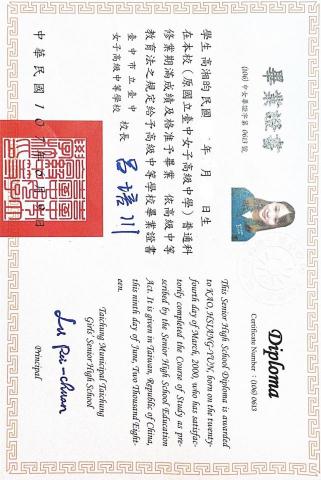 畢業證書
(106) 中女畢證字第 0613 號
學生 高湘昀 民國 年 月 日生
在本校(原國立臺中女子高級中學)普通科
修業期滿成績及格准予畢業 依高級中等
教育法之規定給予高級中等學校畢業證書
臺中市立臺中
女子高級中等學校 校長
中華民國107年
Diploma
Certificate Number : (106) 0613
This Senior High School Diploma is awarded
to KAO, HSIANG-YUN, born on the twenty-
fourth day of March, 2000, who has satisfac-
torily completed the Course of Study as pre-
scribed by the Senior High School Education
Act. It is given in Taiwan, Republic of China,
this ninth day of June, Two Thousand Eight-
een.
Taichung Municipal Taichung
Girls' Senior High School
Lu Pei-chuan
Principal